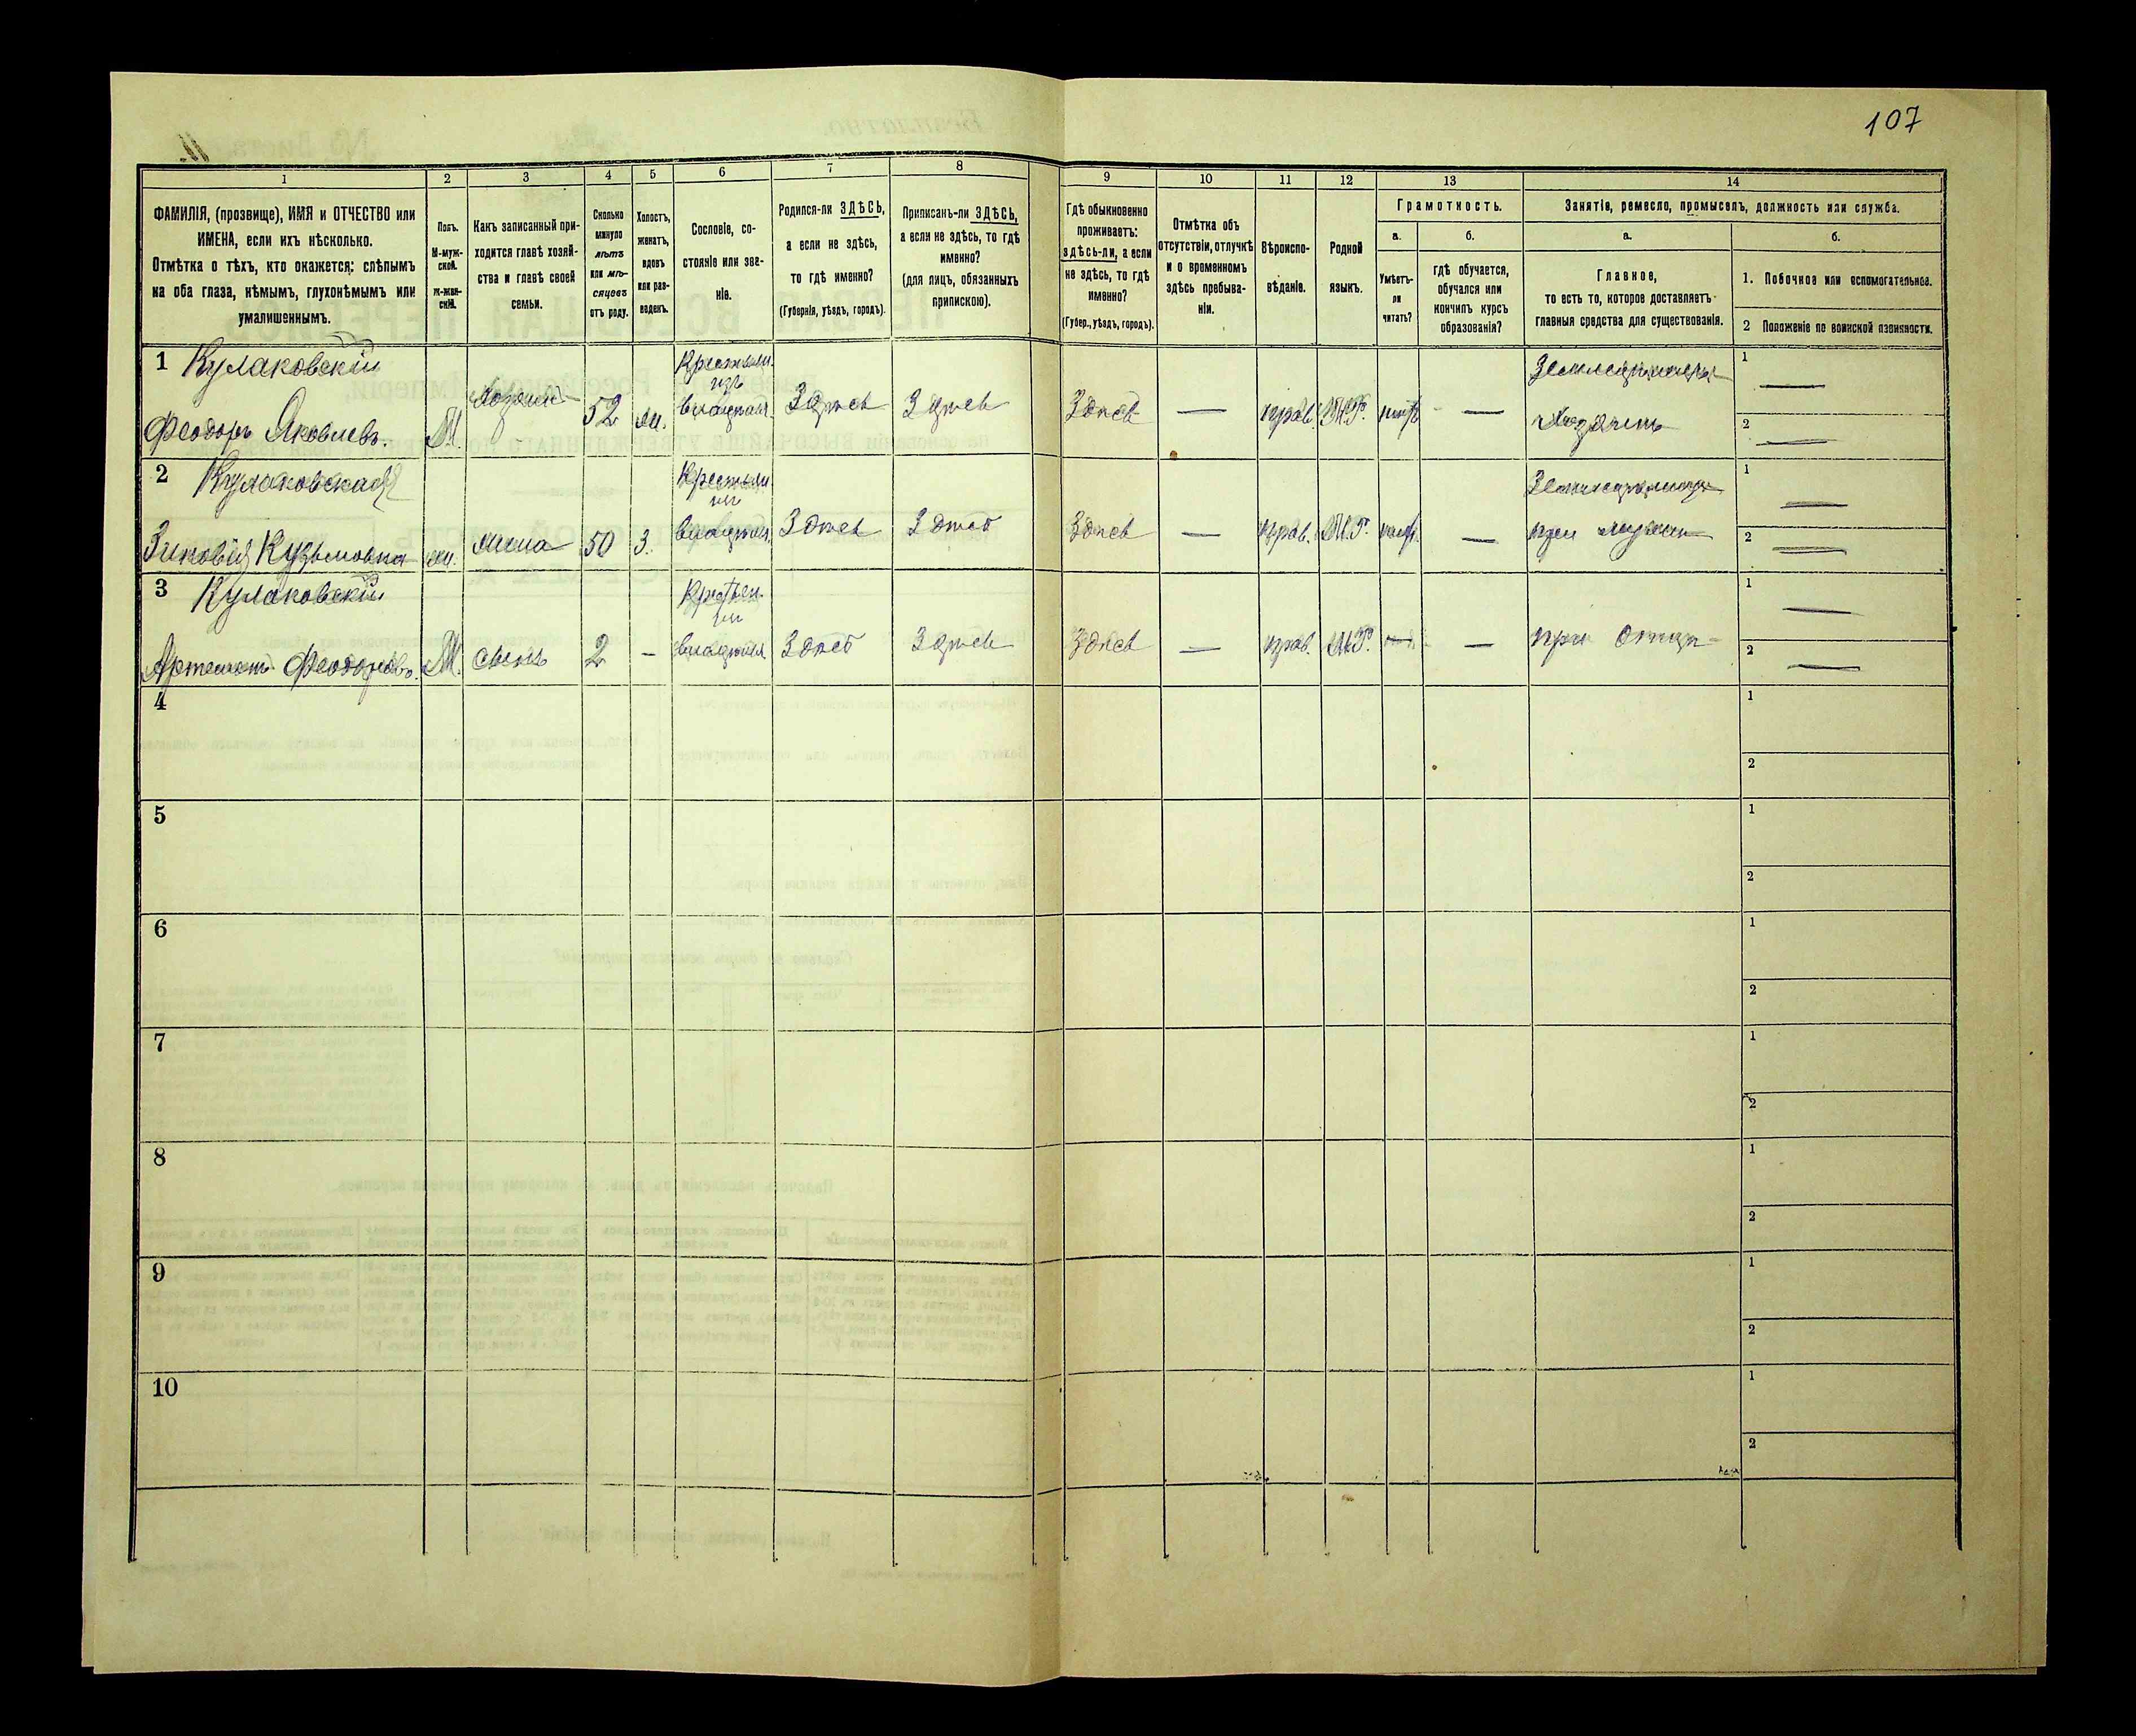 107
1 2 3 4 5 6 7 8 9 10 11 12 13 14
ФАМИЛІЯ, (прозвище), ИМЯ и ОТЧЕСТВО или
ИМЕНА, если ихъ нѣсколько.
Отмѣтка о тѣхъ, кто окажется: слѣпымъ
на оба глаза, нѣмымъ, глухонѣмымъ или
умалишеннымъ.
Полъ.
М-муж-
ской.
Ж-жен-
скій.
Какъ записанный при-
ходится главѣ хозяй-
ства и главѣ своей
семьи.
Сколько
минуло
лѣтъ
или мѣ-
сяцевъ
отъ роду.
Холостъ,
женатъ,
вдовъ
или раз-
веденъ.
Сословіе, со-
стояніе или зва-
ніе.
Родился-ли ЗДѢСЬ,
а если не здѣсь,
то гдѣ именно?
(Губернія, уѣздъ, городъ).
Приписанъ-ли ЗДѢСЬ,
а если не здѣсь, то гдѣ
именно?
(для лицъ, обязанныхъ
припискою).
Гдѣ обыкновенно
проживаетъ:
здѣсь-ли, а если
не здѣсь, то гдѣ
именно?
(Губер., уѣздъ, городъ).
Отмѣтка объ
отсутствіи, отлучкѣ
и о временномъ
здѣсь пребыва-
ніи.
Вѣроиспо-
вѣданіе.
Родной
языкъ.
Грамотность.
а.
Умѣетъ-
ли
читать?
б.
гдѣ обучается,
обучался или
кончилъ курсъ
образованія?
Занятіе, ремесло, промыселъ, должность или служба.
а.
Главное,
то есть то, которое доставляетъ
главныя средства для существованія.
б.
1. Побочное или вспомогательное.
2 Положеніе по воинской повинности.
1 Кулаковскій
Феодоръ Яковлевъ. М. 52 Здѣсь Здѣсь Здѣсь — прав. М.Р. —
1 —
2 —
2 Кулаковская
Зиновія Кузьмовна жена 50 З. Здѣсь Здѣсь Здѣсь — прав. М.Р. — при мужи
1 —
2 —
3 Кулаковскій
Феодоровъ. М. сынъ 2 - Здѣсь Здѣсь Здѣсь — прав. М.Р. — при отцѣ
1 —
2 —
4 1
2
5 1
2
6 1
2
7 1
2
8 1
2
9 1
2
10 1
2